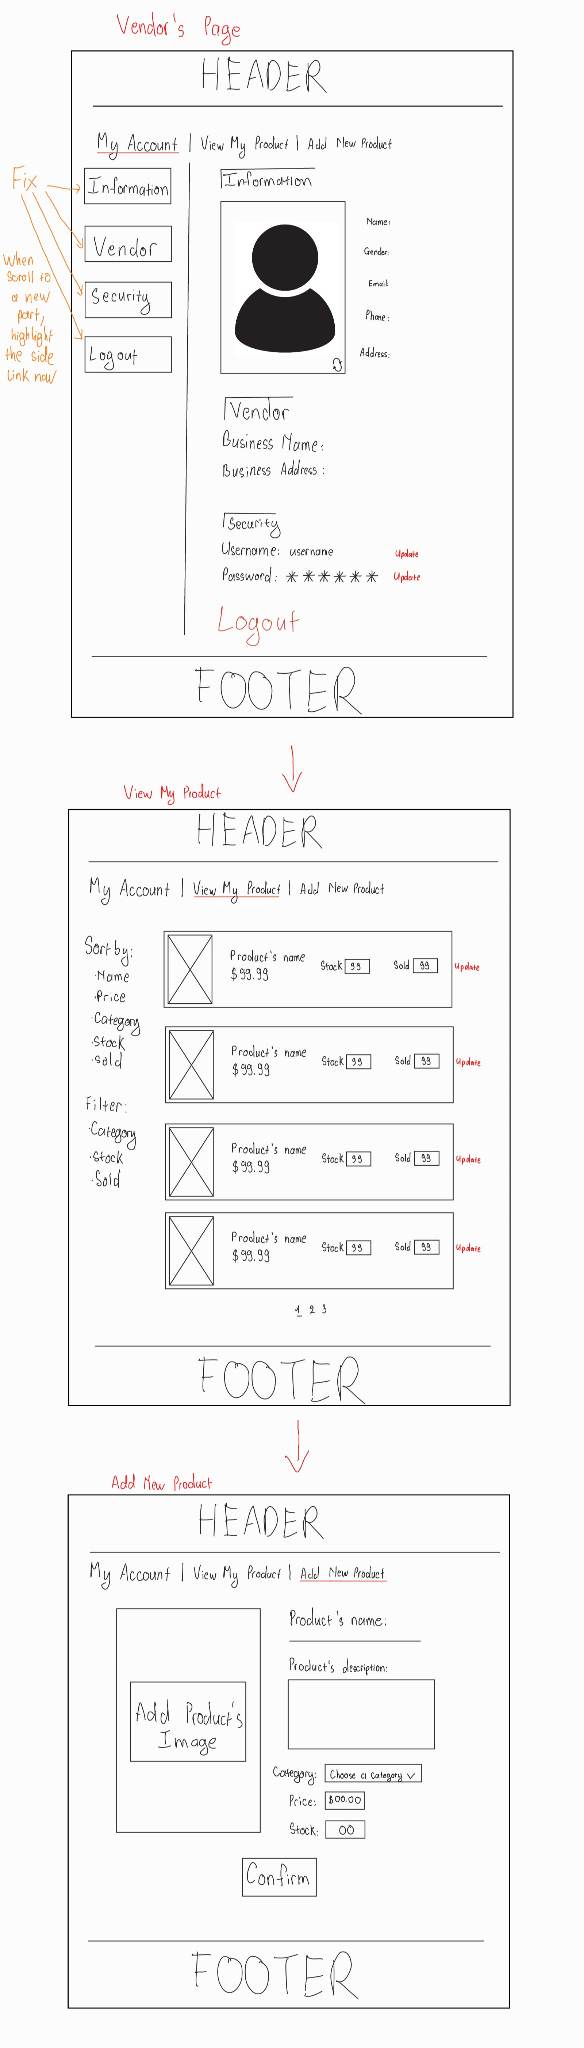 Vendor's Page
HEADER
My Account | View My Product | Add New Product
Fix
When
scroll to
a new
part,
highlight
the side
link now
Information
Vendor
Security
Logout
Information
Name:
Gender:
Email:
Phone:
Address:
Vendor
Business Name:
Business Address:
Security
Username: username Update
Password: ****** Update
Logout
FOOTER
View My Product
HEADER
My Account | View My Product | Add New Product
Sort by:
·Name
·Price
·Category
·Stock
·Sold
Filter:
·Category
·Stock
·Sold
Product's name
$99.99
Stock 99 Sold 99 Update
Product's name
$99.99
Stock 99 Sold 99 Update
Product's name
$99.99
Stock 99 Sold 99 Update
Product's name
$99.99
Stock 99 Sold 99 Update
1 2 3
FOOTER
Add New Product
HEADER
My Account | View My Product | Add New Product
Add Product's
Image
Product's name:
Product's description:
Category: Choose a category
Price: $00.00
Stock: 00
Confirm
FOOTER